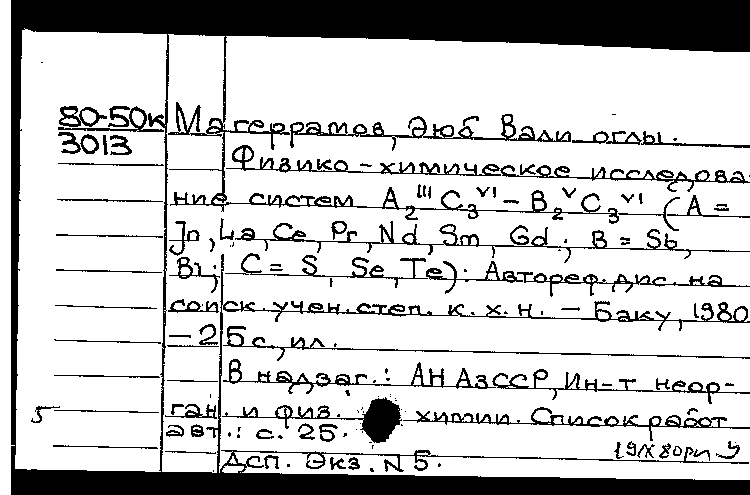 80-50к
3013
Магеррамов, Эюб Вали оглы.
Физико-химическое исследова-
ние систем A₂ᴵᴵᴵC₃ⱽᴵ – B₂ⱽC₃ⱽᴵ (A =
Jn, La, Ce, Pr, Nd, Sm, Gd; B = Sb,
Bi; C = S, Se, Te): Автореф. дис. на
соиск. учен. степ. к. х. н. – Баку, 1980
– 25 с., ил.
В надзаг.: АН АзССР, Ин-т неор-
ган. и физ. химии. Список работ
авт.: с. 25.
5
Дсп. Экз. N 5.